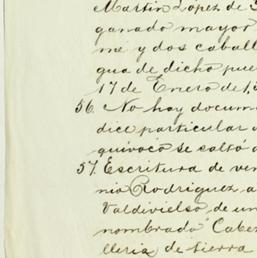 Martin Lopez de
ganado mayor
me y dos caball
gua de dicho pue
17 de Enero de 1,5
56. No hay docume
dice particular
quivocó se saltó
57. Escritura de ven
nio Rodriguez, a
Valdivielso, de un
nombrado Caber
lleria de tierra